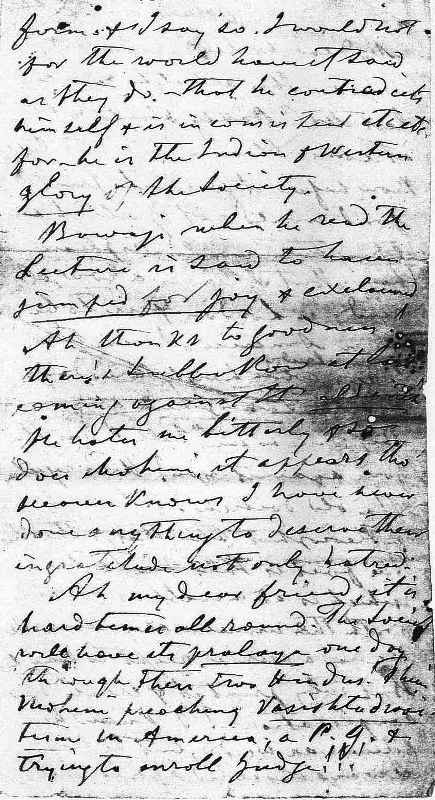 form. & I say so. I would not
for the world have it said
as they do - that he contradicts
himself & is inconsistent etc etc
for he is the Indian & Western
glory of the Society.
Bowaji when he read the
Lecture is said to have
jumped for joy & exclaimed
Ah thanks to goodness!
there's Subba Row at last
coming against the
He hates me bitterly & so
does Mohini, it appears tho'
heaven knows I have never
done anything to deserve their
ingratitude not only hatred.
Ah my dear friend, it is
hard times all round. The Society
will have its pralaya one day
through these two Hindus. Then
Mohini preaching Vasishtadwai
tism in America; a P. G. &
trying to enroll Judge!!!